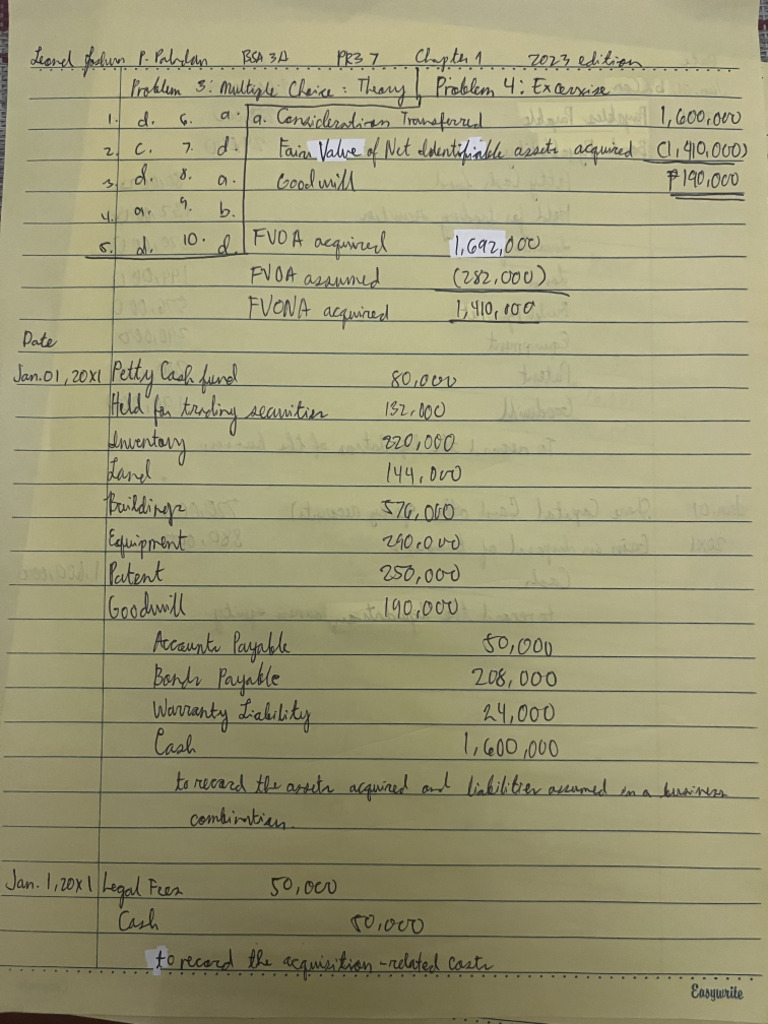 P. BSA 3A PR3 7 Chapter 1 2023 edition
Problem 3: Multiple Choice: Theory Problem 4: Excercise
1. d. 6. a. a. Consideration Transferred 1,600,000
2. c. 7. d. Fair Value of Net Identifiable assets acquired (1,410,000)
3. d. 8. a. Goodwill ₱190,000
4. a. 9. b.
5. d. 10. d. FVOA acquired 1,692,000
FVOA assumed (282,000)
FVONA acquired 1,410,000
Date
Jan. 01, 20X1 Petty Cash fund 80,000
Held for trading securities 132,000
Inventory 220,000
Land 144,000
Buildings 576,000
Equipment 290,000
Patent 250,000
Goodwill 190,000
Accounts Payable 50,000
Bonds Payable 208,000
Warranty Liability 24,000
Cash 1,600,000
to record the assets acquired and liabilities assumed in a business
combination.
Jan. 1, 20X1 Legal Fees 50,000
Cash 50,000
to record the acquisition-related costs
Easywrite